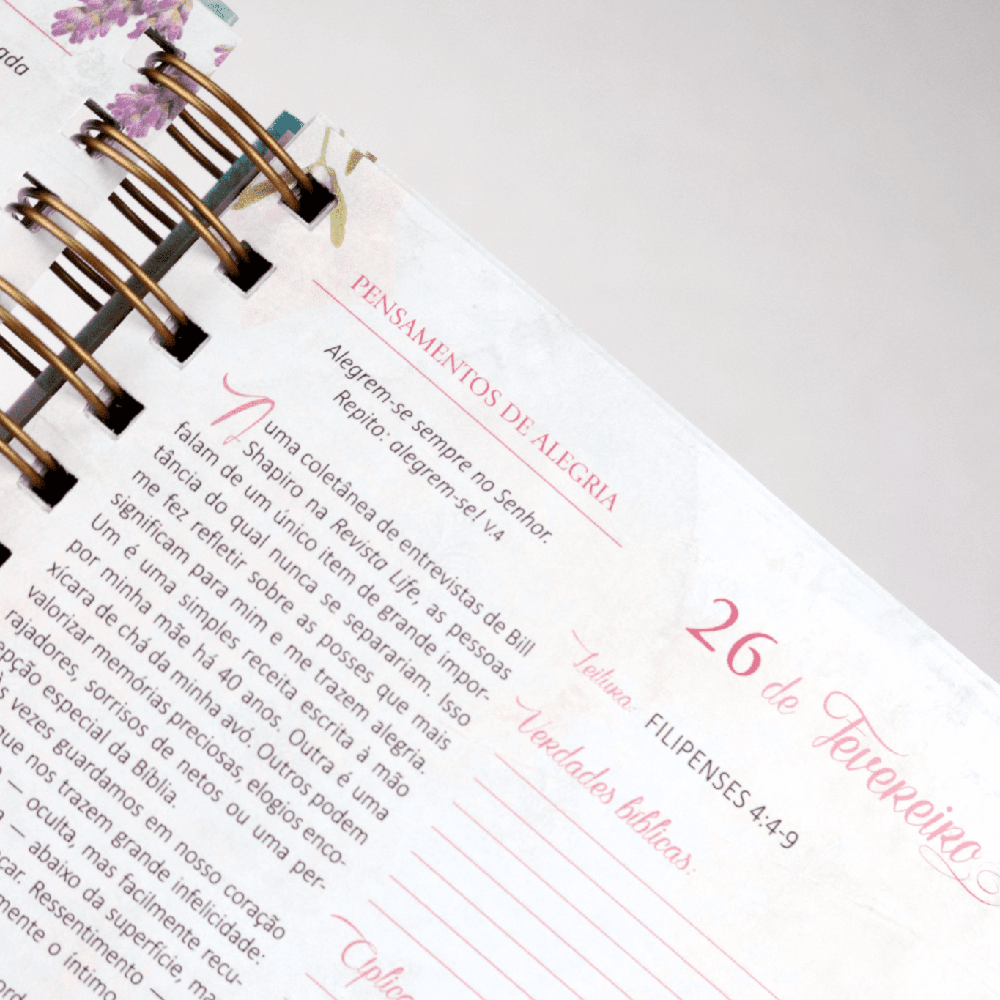 PENSAMENTOS DE ALEGRIA
Alegrem-se sempre no Senhor.
Repito: alegrem-se! v.4
Numa coletânea de entrevistas de Bill
Shapiro na Revista Life, as pessoas
falam de um único item de grande impor-
tância do qual nunca se separariam. Isso
me fez refletir sobre as posses que mais
significam para mim e me trazem alegria.
Um é uma simples receita escrita à mão
por minha mãe há 40 anos. Outra é uma
xícara de chá da minha avó. Outros podem
valorizar memórias preciosas, elogios enco-
rajadores, sorrisos de netos ou uma per-
epção especial da Bíblia.
vezes guardamos em nosso coração
que nos trazem grande infelicidade:
— oculta, mas facilmente recu-
— abaixo da superfície,
Ressentimento —
o íntimo
26 de Fevereiro
Leitura: FILIPENSES 4:4-9
Verdades bíblicas: